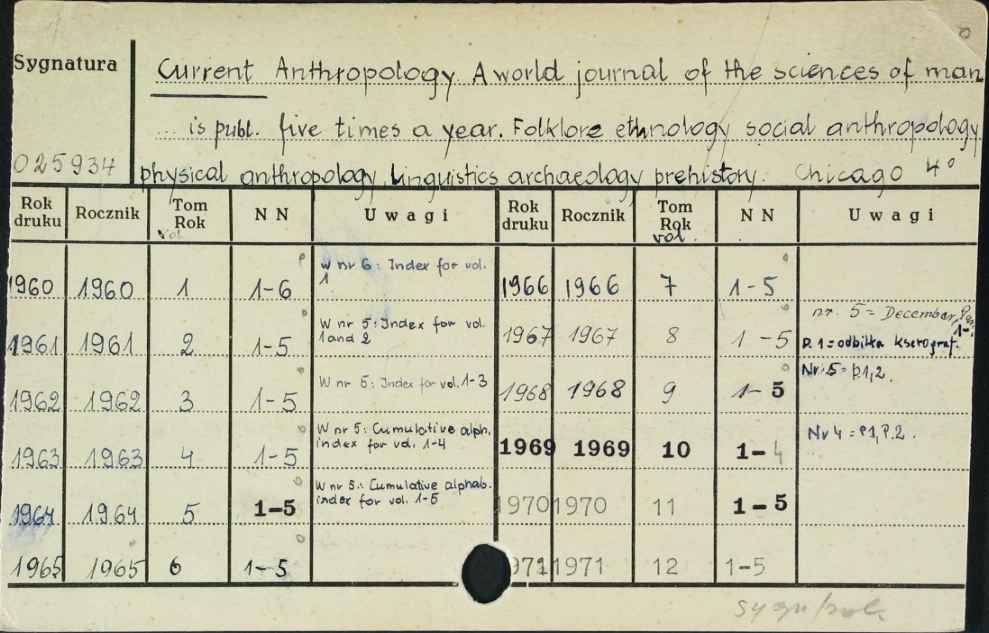 Sygnatura
Current Anthropology. A world journal of the sciences of man
... is publ. five times a year. Folklore ethnology social anthropology
025934 physical anthropology, Linguistics archaeology prehistory. Chicago 4°
Rok druku Rocznik Tom Rok vol. N N Uwagi Rok druku Rocznik Tom Rok vol. N N Uwagi
1960 1960 1 1-6 W nr 6: Index for vol. 1 1966 1966 7 1-5
1961 1961 2 1-5 W nr 5: Index for vol. 1 and 2 1967 1967 8 1-5 nr. 5 = December, P. 1 = odbitka kserograf.
1962 1962 3 1-5 W nr 5: Index for vol. 1-3 1968 1968 9 1-5 Nr. 5 = p.1,2.
1963 1963 4 1-5 W nr 5: Cumulative alph. index for vol. 1-4 1969 1969 10 1-4 Nr 4 = P1, P.2.
1964 1964 5 1-5 W nr 5: Cumulative alphab. index for vol. 1-5 1970 1970 11 1-5
1965 1965 6 1-5 1971 1971 12 1-5